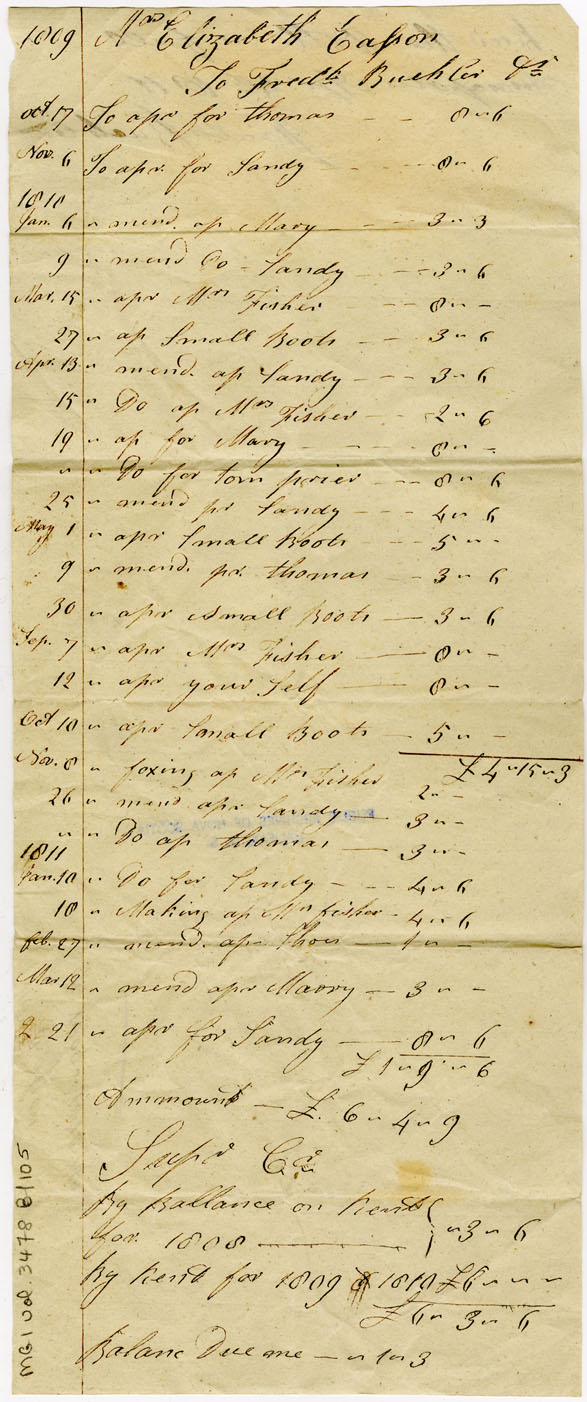 1809 Mrs Elizabeth Easson
To Fredk. Buehler Dr
oct. 17 To apr for thomas - - 8 " 6
Nov. 6 To apr. for Sandy - - - 8 " 6
1810
Jan. 6 " mend. ap Mary - - - 3 " 3
9 " mend Do - Sandy - - 3 " 6
Mar. 15 " apr Mrs Fisher - - 8 " -
27 " ap Small Boots - - 3 " 6
Apr. 13 " mend. ap Sandy - - 3 " 6
15 " Do ap Mrs Fisher - - 2 " 6
19 " ap for Mary - - - 8 " -
" " Do for tom - 8 " 6
25 " mend pr Sandy - 4 " 6
May 1 " apr Small Boots - 5 " -
9 " mend. pr. thomas - 3 " 6
30 " apr Small Boots - 3 " 6
Sep. 7 " apr Mrs Fisher - 8 " -
12 " apr your Self - 8 " -
Oct 10 " apr Small Boots - 5 " -
£ 4 " 15 " 3
Nov. 8 " foxing ap Mrs Fisher 2 " -
26 " mend apr Sandy - 3 " -
" " Do ap thomas - 3 " -
1811
Jan. 10 " Do for Sandy - - 4 " 6
18 " Making ap Mrs fisher - 4 " 6
feb. 27 " mend. ap Shoes - 1 " -
Mar 12 " mend apr Marry - 3 " -
21 " apr for Sandy - 8 " 6
£ 1 " 9 " 6
Ammount - £. 6 " 4 " 9
Supr Cr
By Ballance on Rent
for 1808 - " 3 " 6
By Rent for 1809 & 1810 £6 " " -
£6 " 3 " 6
Balanc Due me - " 1 " 3
MG 1 vol. 3478 B/105